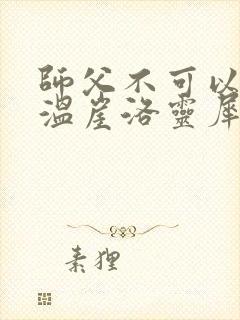 師父不可以
溫崖洛靈犀
素狸